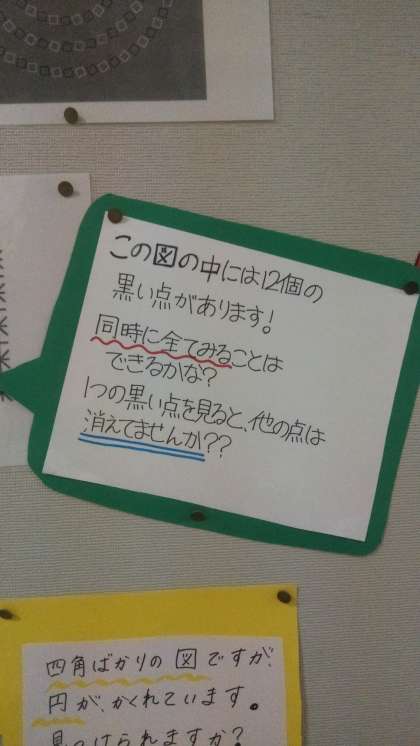 この図の中には12個の
黒い点があります!
同時に全てみることは
できるかな?
1つの黒い点を見ると、他の点は
消えてませんか??
四角ばかりの図ですが、
円が、かくれています。
見つけられますか?